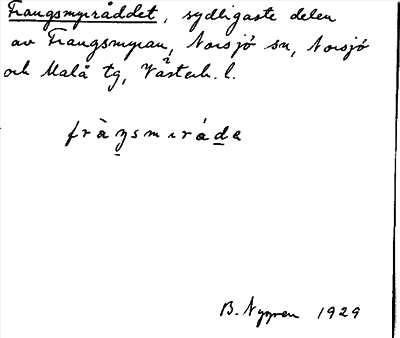 Frangsmyråddet, sydligaste delen
av Frangsmyran, Norsjö sn, Norsjö
och Malå tg, Västerb. l.
fràŋsmıráde
B. Nygren 1929